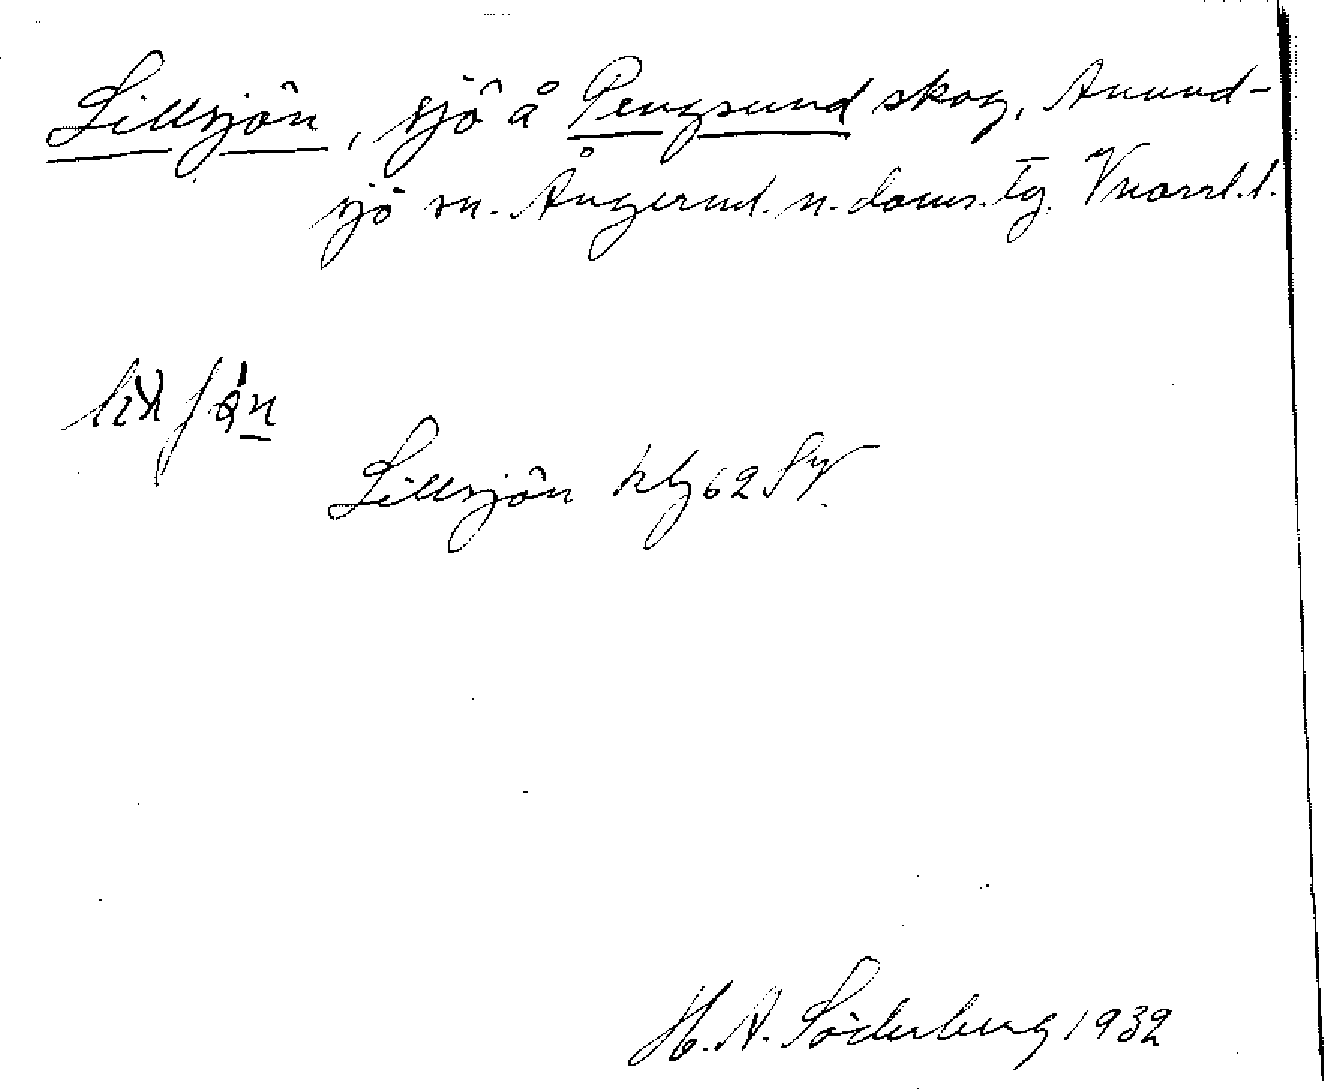 Lillsjön, sjö å Pengsund skog, Anund-
sjö sn. Ångerml. n. doms. tg. Vnorrl. l.
Lillsjön hlg 62 Sv.
H. A. Söderberg 1932